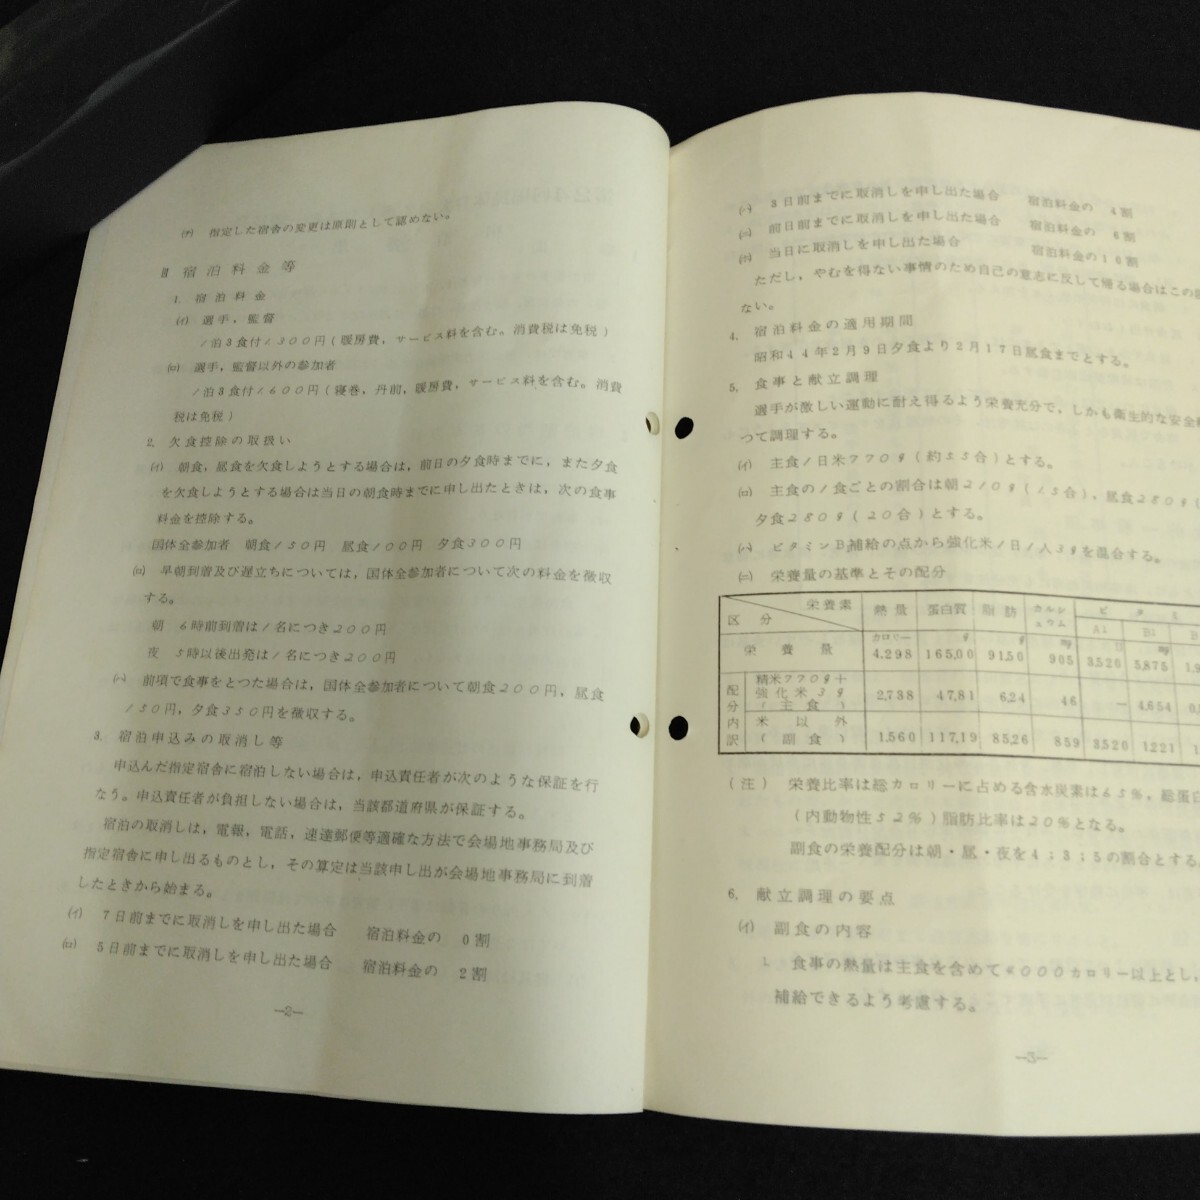 (チ) 指定した宿舎の変更は原則として認めない。
Ⅱ 宿泊料金等
1. 宿泊料金
(イ) 選手，監督
1泊3食付1300円(暖房費，サービス料を含む。消費税は免税)
(ロ) 選手，監督以外の参加者
1泊3食付1600円(寝巻，丹前，暖房費，サービス料を含む。消費
税は免税)
2. 欠食控除の取扱い
(イ) 朝食，昼食を欠食しようとする場合は，前日の夕食時までに，また夕食
を欠食しようとする場合は当日の朝食時までに申し出たときは，次の食事
料金を控除する。
国体全参加者 朝食150円 昼食100円 夕食300円
(ロ) 早朝到着及び遅立ちについては，国体全参加者について次の料金を徴収
する。
朝 6時前到着は1名につき200円
夜 5時以後出発は1名につき200円
(ハ) 前項で食事をとつた場合は，国体全参加者について朝食200円，昼食
150円，夕食350円を徴収する。
3. 宿泊申込みの取消し等
申込んだ指定宿舎に宿泊しない場合は，申込責任者が次のような保証を行
なう。申込責任者が負担しない場合は，当該都道府県が保証する。
宿泊の取消しは，電報，電話，速達郵便等適確な方法で会場地事務局及び
指定宿舎に申し出るものとし，その算定は当該申し出が会場地事務局に到着
したときから始まる。
(イ) 7日前までに取消しを申し出た場合 宿泊料金の 0割
(ロ) 5日前までに取消しを申し出た場合 宿泊料金の 2割
—2—
(ハ) 3日前までに取消しを申し出た場合 宿泊料金の 4割
(ニ) 前日前までに取消しを申し出た場合 宿泊料金の 6割
(ホ) 当日に取消しを申し出た場合 宿泊料金の10割
ただし，やむを得ない事情のため自己の意志に反して帰る場合はこの
ない。
4. 宿泊料金の適用期間
昭和44年2月9日夕食より2月17日昼食までとする。
5. 食事と献立調理
選手が激しい運動に耐え得るよう栄養充分で，しかも衛生的な安全
つて調理する。
(イ) 主食1日米770g(約5.5合)とする。
(ロ) 主食の1食ごとの割合は朝210g(1.5合)，昼食280g(
夕食280g(20合)とする。
(ハ) ビタミンB₁補給の点から強化米1日1人3gを混合する。
(ニ) 栄養量の基準とその配分
栄養素 区分 熱量 蛋白質 脂肪 カルシュウム ビタミ
A1 B1 B
栄養量 カロリー 4,298 g 165,00 g 91,50 mg 905 3,520 mg 5,875 1,9
配分内訳 精米770g+強化米3g(主食) 2,738 47,81 6,24 46 — 4,654 0,
米以外(副食) 1,560 117,19 85,26 859 3,520 1,221 1,
(注) 栄養比率は総カロリーに占める含水炭素は65%，総蛋白
(内動物性52%)脂肪比率は20%となる。
副食の栄養配分は朝・昼・夜を4；3；5の割合とする。
6. 献立調理の要点
(イ) 副食の内容
1. 食事の熱量は主食を含めて4000カロリー以上とし，
補給できるよう考慮する。
—3—